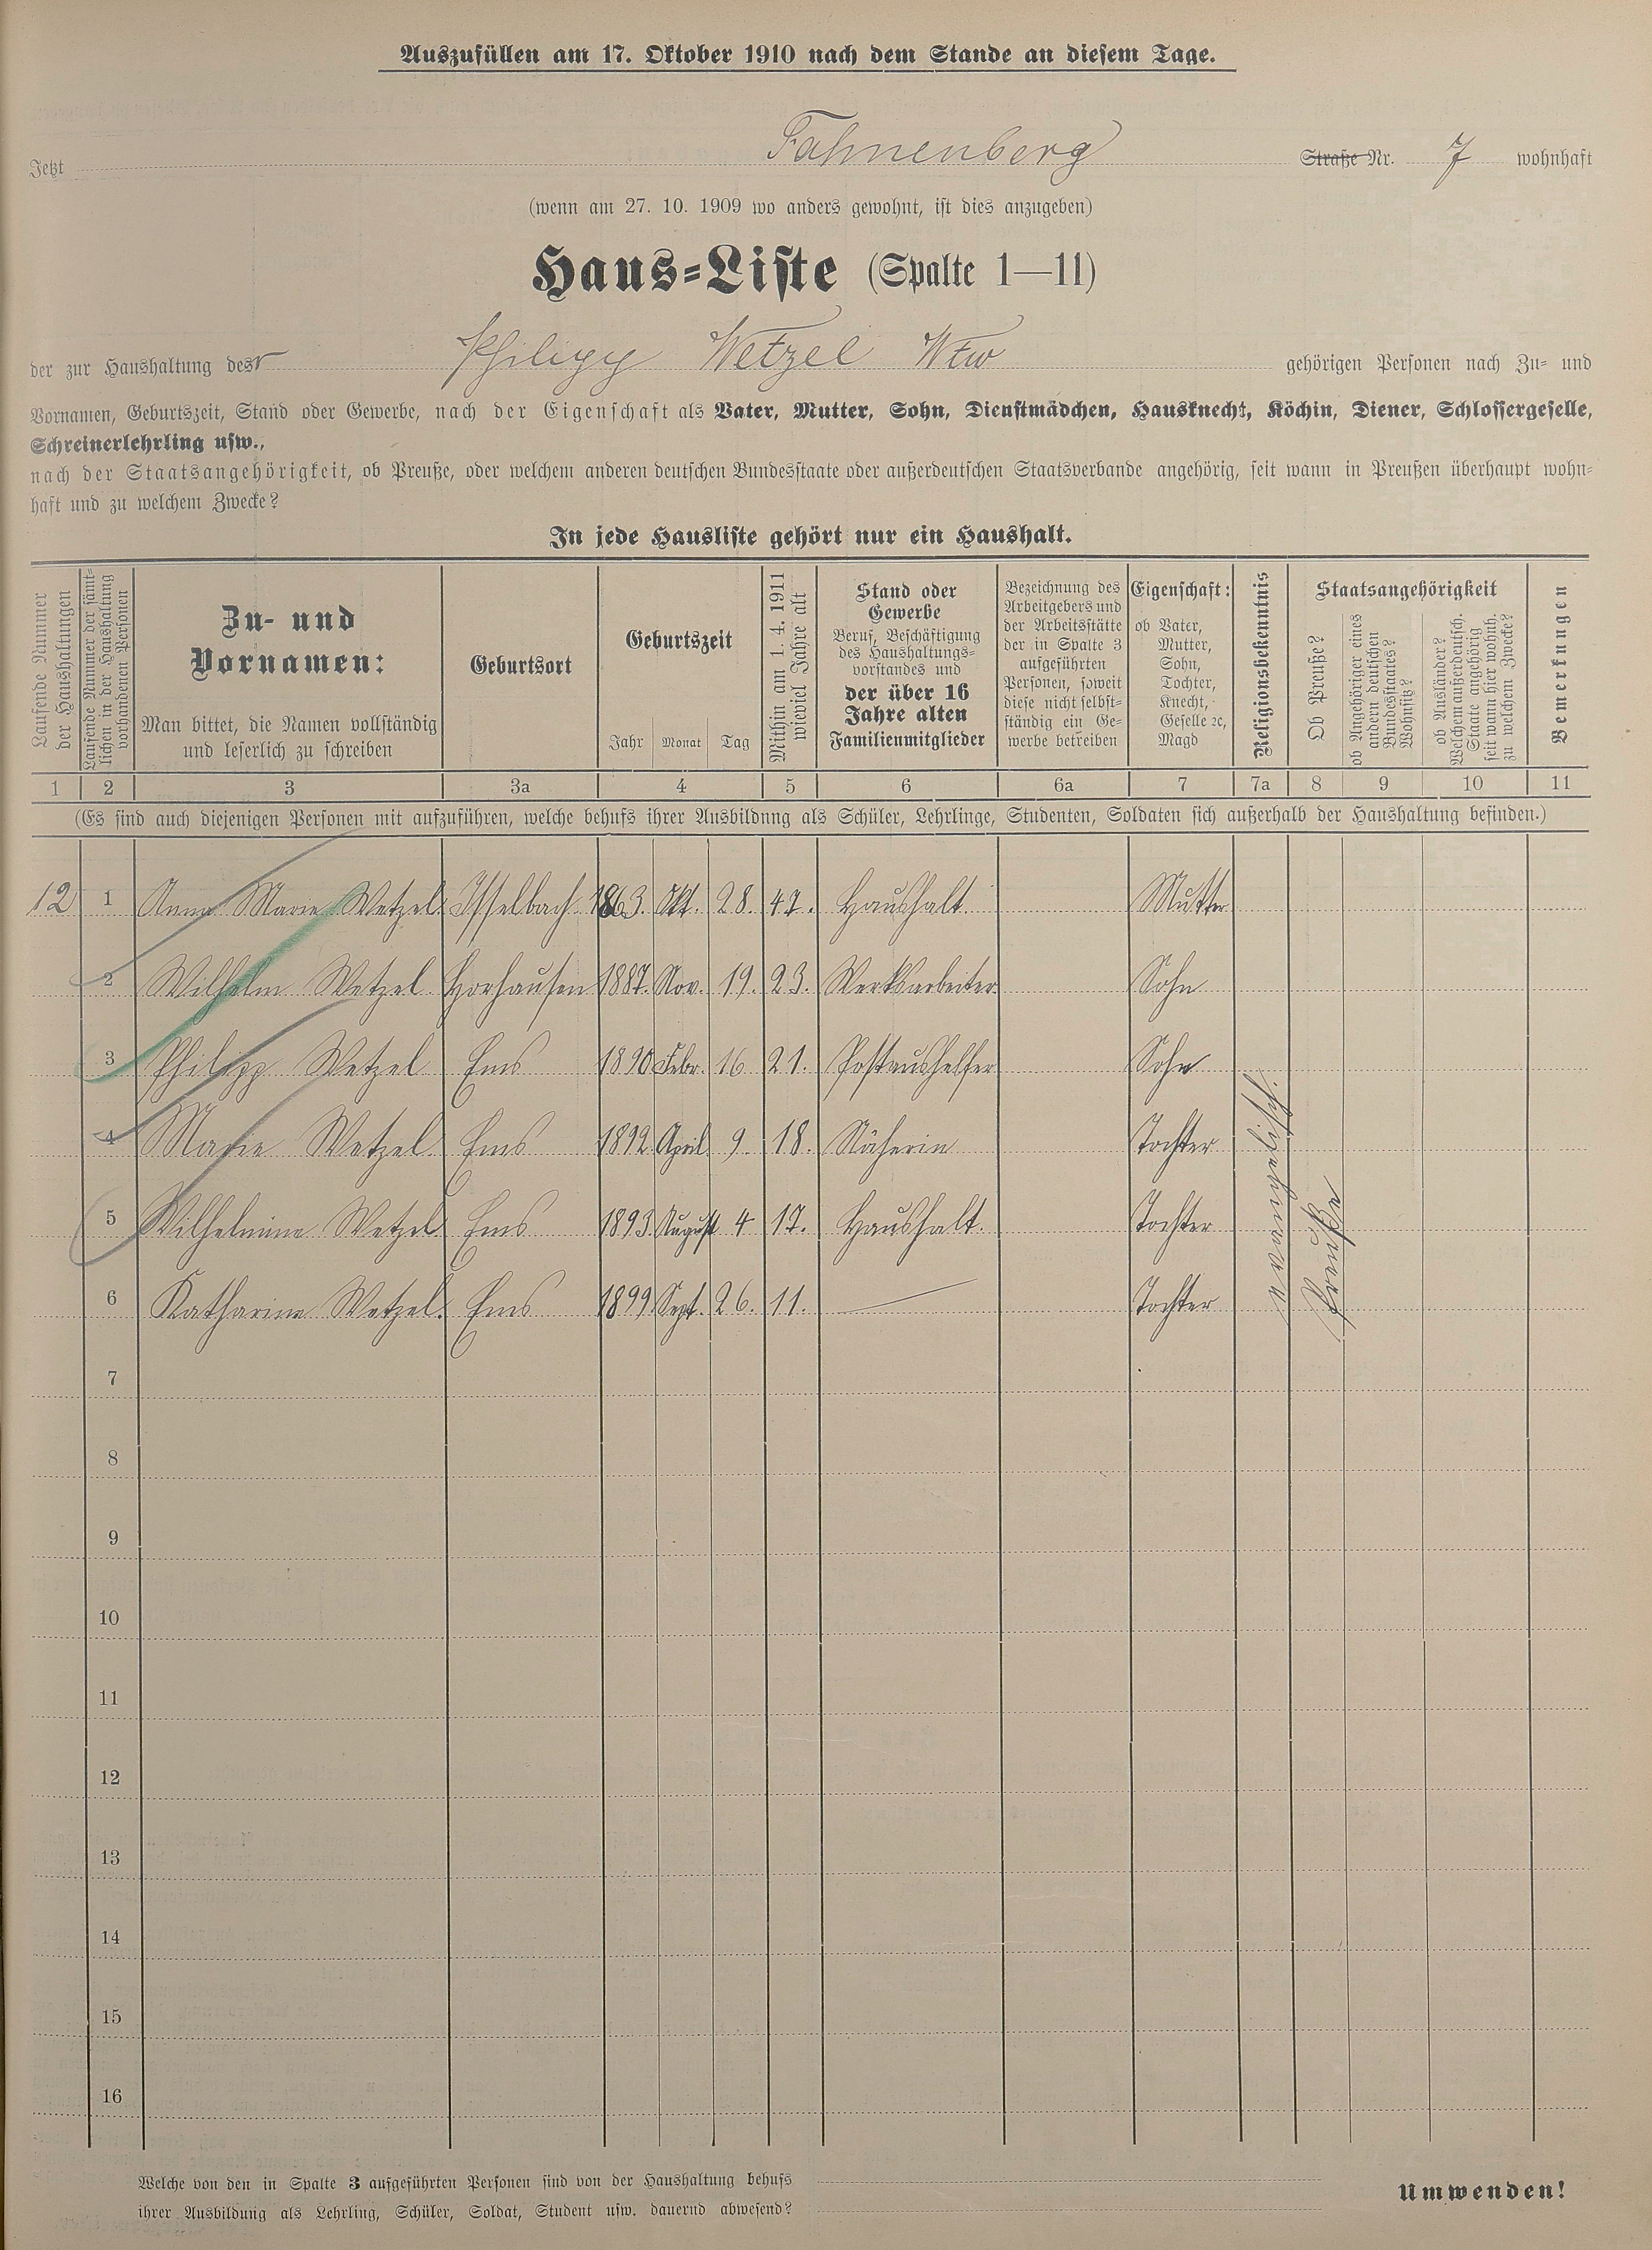 Auszufüllen am 17. Oktober 1910 nach dem Stande an diesem Tage.
Jetzt Fahnenberg Straße Nr. 7 wohnhaft
(wenn am 27. 10. 1909 wo anders gewohnt, ist dies anzugeben)
Haus-Liste (Spalte 1—11)
der zur Haushaltung des r Philipp Wetzel Wtw gehörigen Personen nach Zu- und
Vornamen, Geburtszeit, Stand oder Gewerbe, nach der Eigenschaft als Vater, Mutter, Sohn, Dienstmädchen, Hausknecht, Köchin, Diener, Schlossergeselle,
Schreinerlehrling usw.,
nach der Staatsangehörigkeit, ob Preuße, oder welchem anderen deutschen Bundesstaate oder außerdeutschen Staatsverbande angehörig, seit wann in Preußen überhaupt wohn-
haft und zu welchem Zwecke?
In jede Hausliste gehört nur ein Haushalt.
Laufende Nummer
der Haushaltungen
Laufende Nummer der sämt-
lichen in der Haushaltung
vorhandenen Personen
Zu- und
Vornamen:
Man bittet, die Namen vollständig
und leserlich zu schreiben
Geburtsort
Geburtszeit
Jahr Monat Tag
Mithin am 1. 4. 1911
wieviel Jahre alt
Stand oder
Gewerbe
Beruf, Beschäftigung
des Haushaltungs-
vorstandes und
der über 16
Jahre alten
Familienmitglieder
Bezeichnung des
Arbeitgebers und
der Arbeitsstätte
der in Spalte 3
aufgeführten
Personen, soweit
diese nicht selbst-
ständig ein Ge-
werbe betreiben
Eigenschaft:
ob Vater,
Mutter,
Sohn,
Tochter,
Knecht,
Geselle ꝛc,
Magd
Religionsbekenntnis
Staatsangehörigkeit
Ob Preuße?
ob Angehöriger eines
andern deutschen
Bundesstaates?
Wohnsitz?
ob Ausländer?
Welchem außerdeutsch.
Staate angehörig
seit wann hier wohnh.
zu welchem Zwecke?
Bemerkungen
1 2 3 3a 4 5 6 6a 7 7a 8 9 10 11
(Es sind auch diejenigen Personen mit aufzuführen, welche behufs ihrer Ausbildung als Schüler, Lehrlinge, Studenten, Soldaten sich außerhalb der Haushaltung befinden.)
12 1 Anna Marie Wetzel Isselbach 1863. Okt. 28. 47. Haushalt Mutter
2 Wilhelm Wetzel Horhausen 1887. Nov. 19. 23. Werksarbeiter Sohn
3 Philipp Wetzel Ems 1890 Febr. 16 21. Postaushelfer Sohn
4 Marie Wetzel Ems 1892 April 9 18. Näherin Tochter
5 Wilhelmine Wetzel Ems 1893 August 4 17. Haushalt. Tochter
6 Katharina Wetzel. Ems 1899 Sept. 26. 11. — Tochter
evangelisch.
Preuße
7
8
9
10
11
12
13
14
15
16
Welche von den in Spalte 3 aufgeführten Personen sind von der Haushaltung behufs
ihrer Ausbildung als Lehrling, Schüler, Soldat, Student usw. dauernd abwesend?
Umwenden!